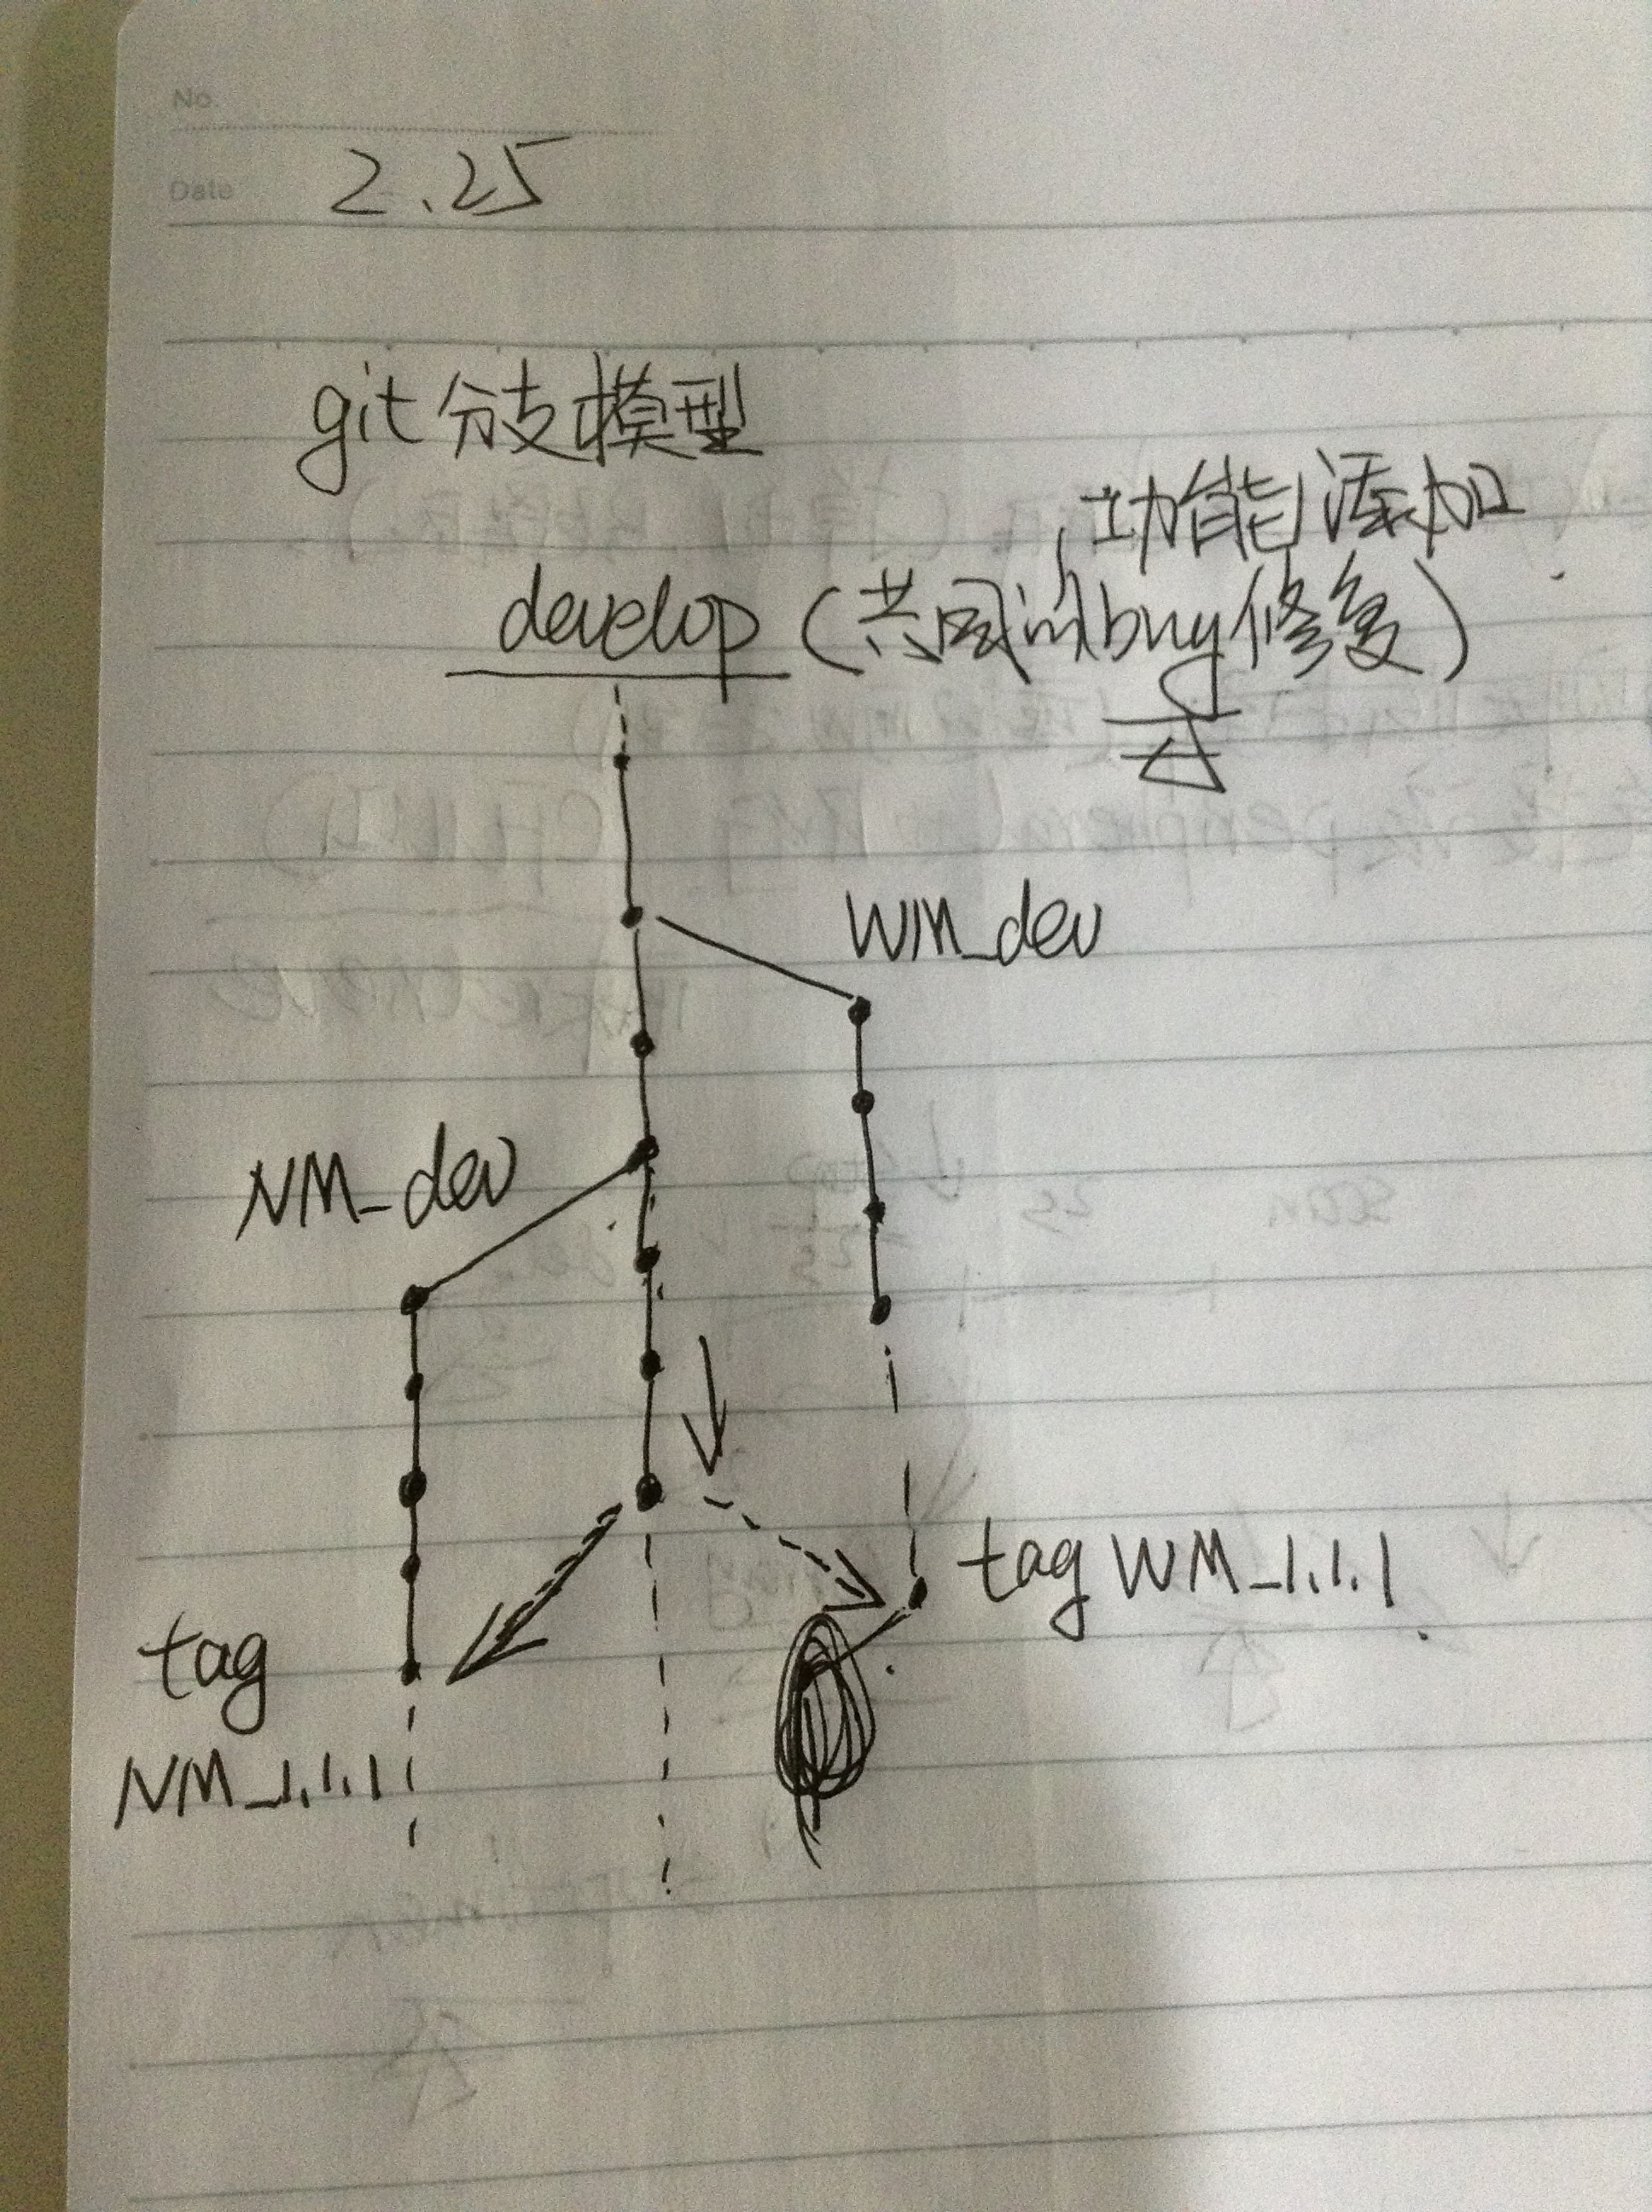 No.
Date 2.25
git分支模型
功能添加
develop (共同的bug修复)
WM_dev
NM_dev
tag WM_1.1.1
tag
NM_1.1.1